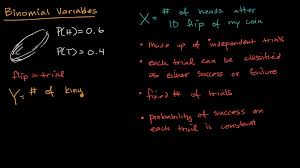 Binomial Variables
P(H) = 0.6
P(T) = 0.4
flip = trial
Y = # of
X = # of heads after
10 flip of my coin
• made up of independent trials
• each trial can be classified
as either success or failure
• fixed # of trials
• probability of success on
each trial is constant